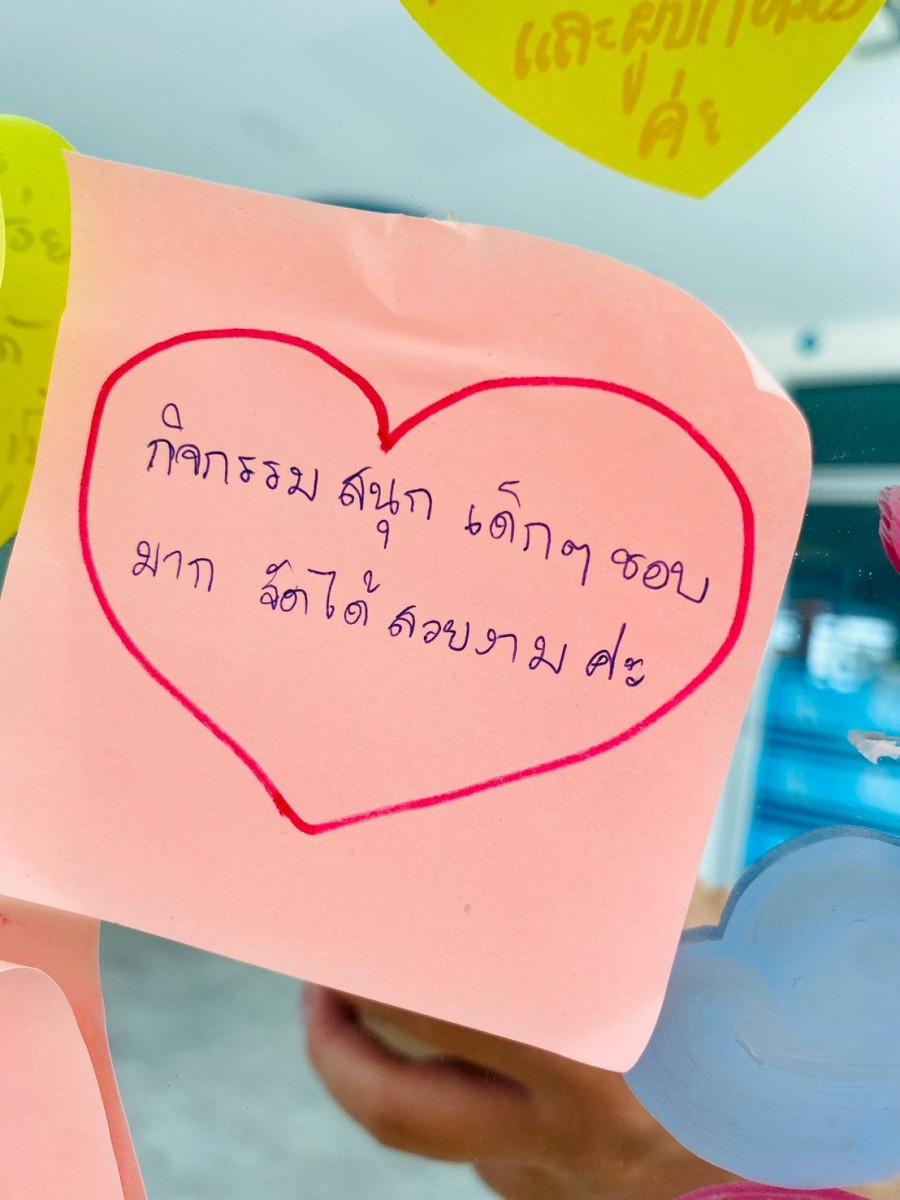 และผู้ปกครอง
ค่ะ
กิจกรรม สนุก เด็กๆ ชอบ
มาก จัดได้ สวยงาม ค่ะ